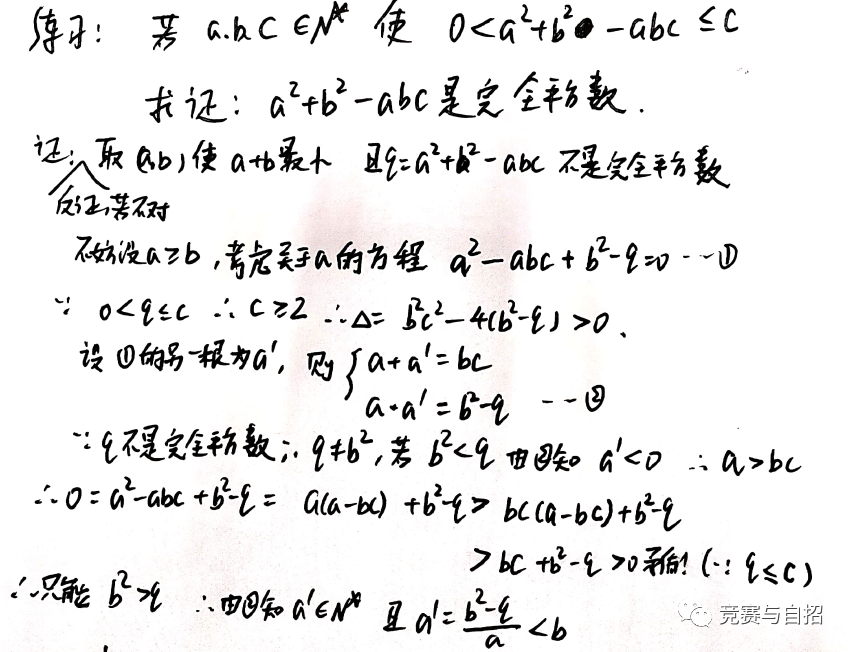 练习: 若 a.b.C ∈N* 使 0<a²+b²-abc ≤C
求证: a²+b²-abc是完全平方数.
证: 取(a,b)使 a+b最小 且q=a²+b²-abc 不是完全平方数
反证,若不对
不妨设a≥b,考虑关于a的方程 a²-abc+b²-q=0 …①
∵ 0<q≤c ∴C≥2 ∴Δ= b²c²-4(b²-q)>0.
设①的另一根为a', 则{a+a'=bc
a·a'=b²-q …②
∵q不是完全平方数∴q≠b²,若 b²<q 由②知 a'<0 ∴a>bc
∴0=a²-abc+b²-q= a(a-bc)+b²-q> bc(a-bc)+b²-q
>bc+b²-q>0矛盾!(∵q≤c)
∴只能 b²>q ∴由②知a'∈N* 且a'=b²-q/a<b
竞赛与自招